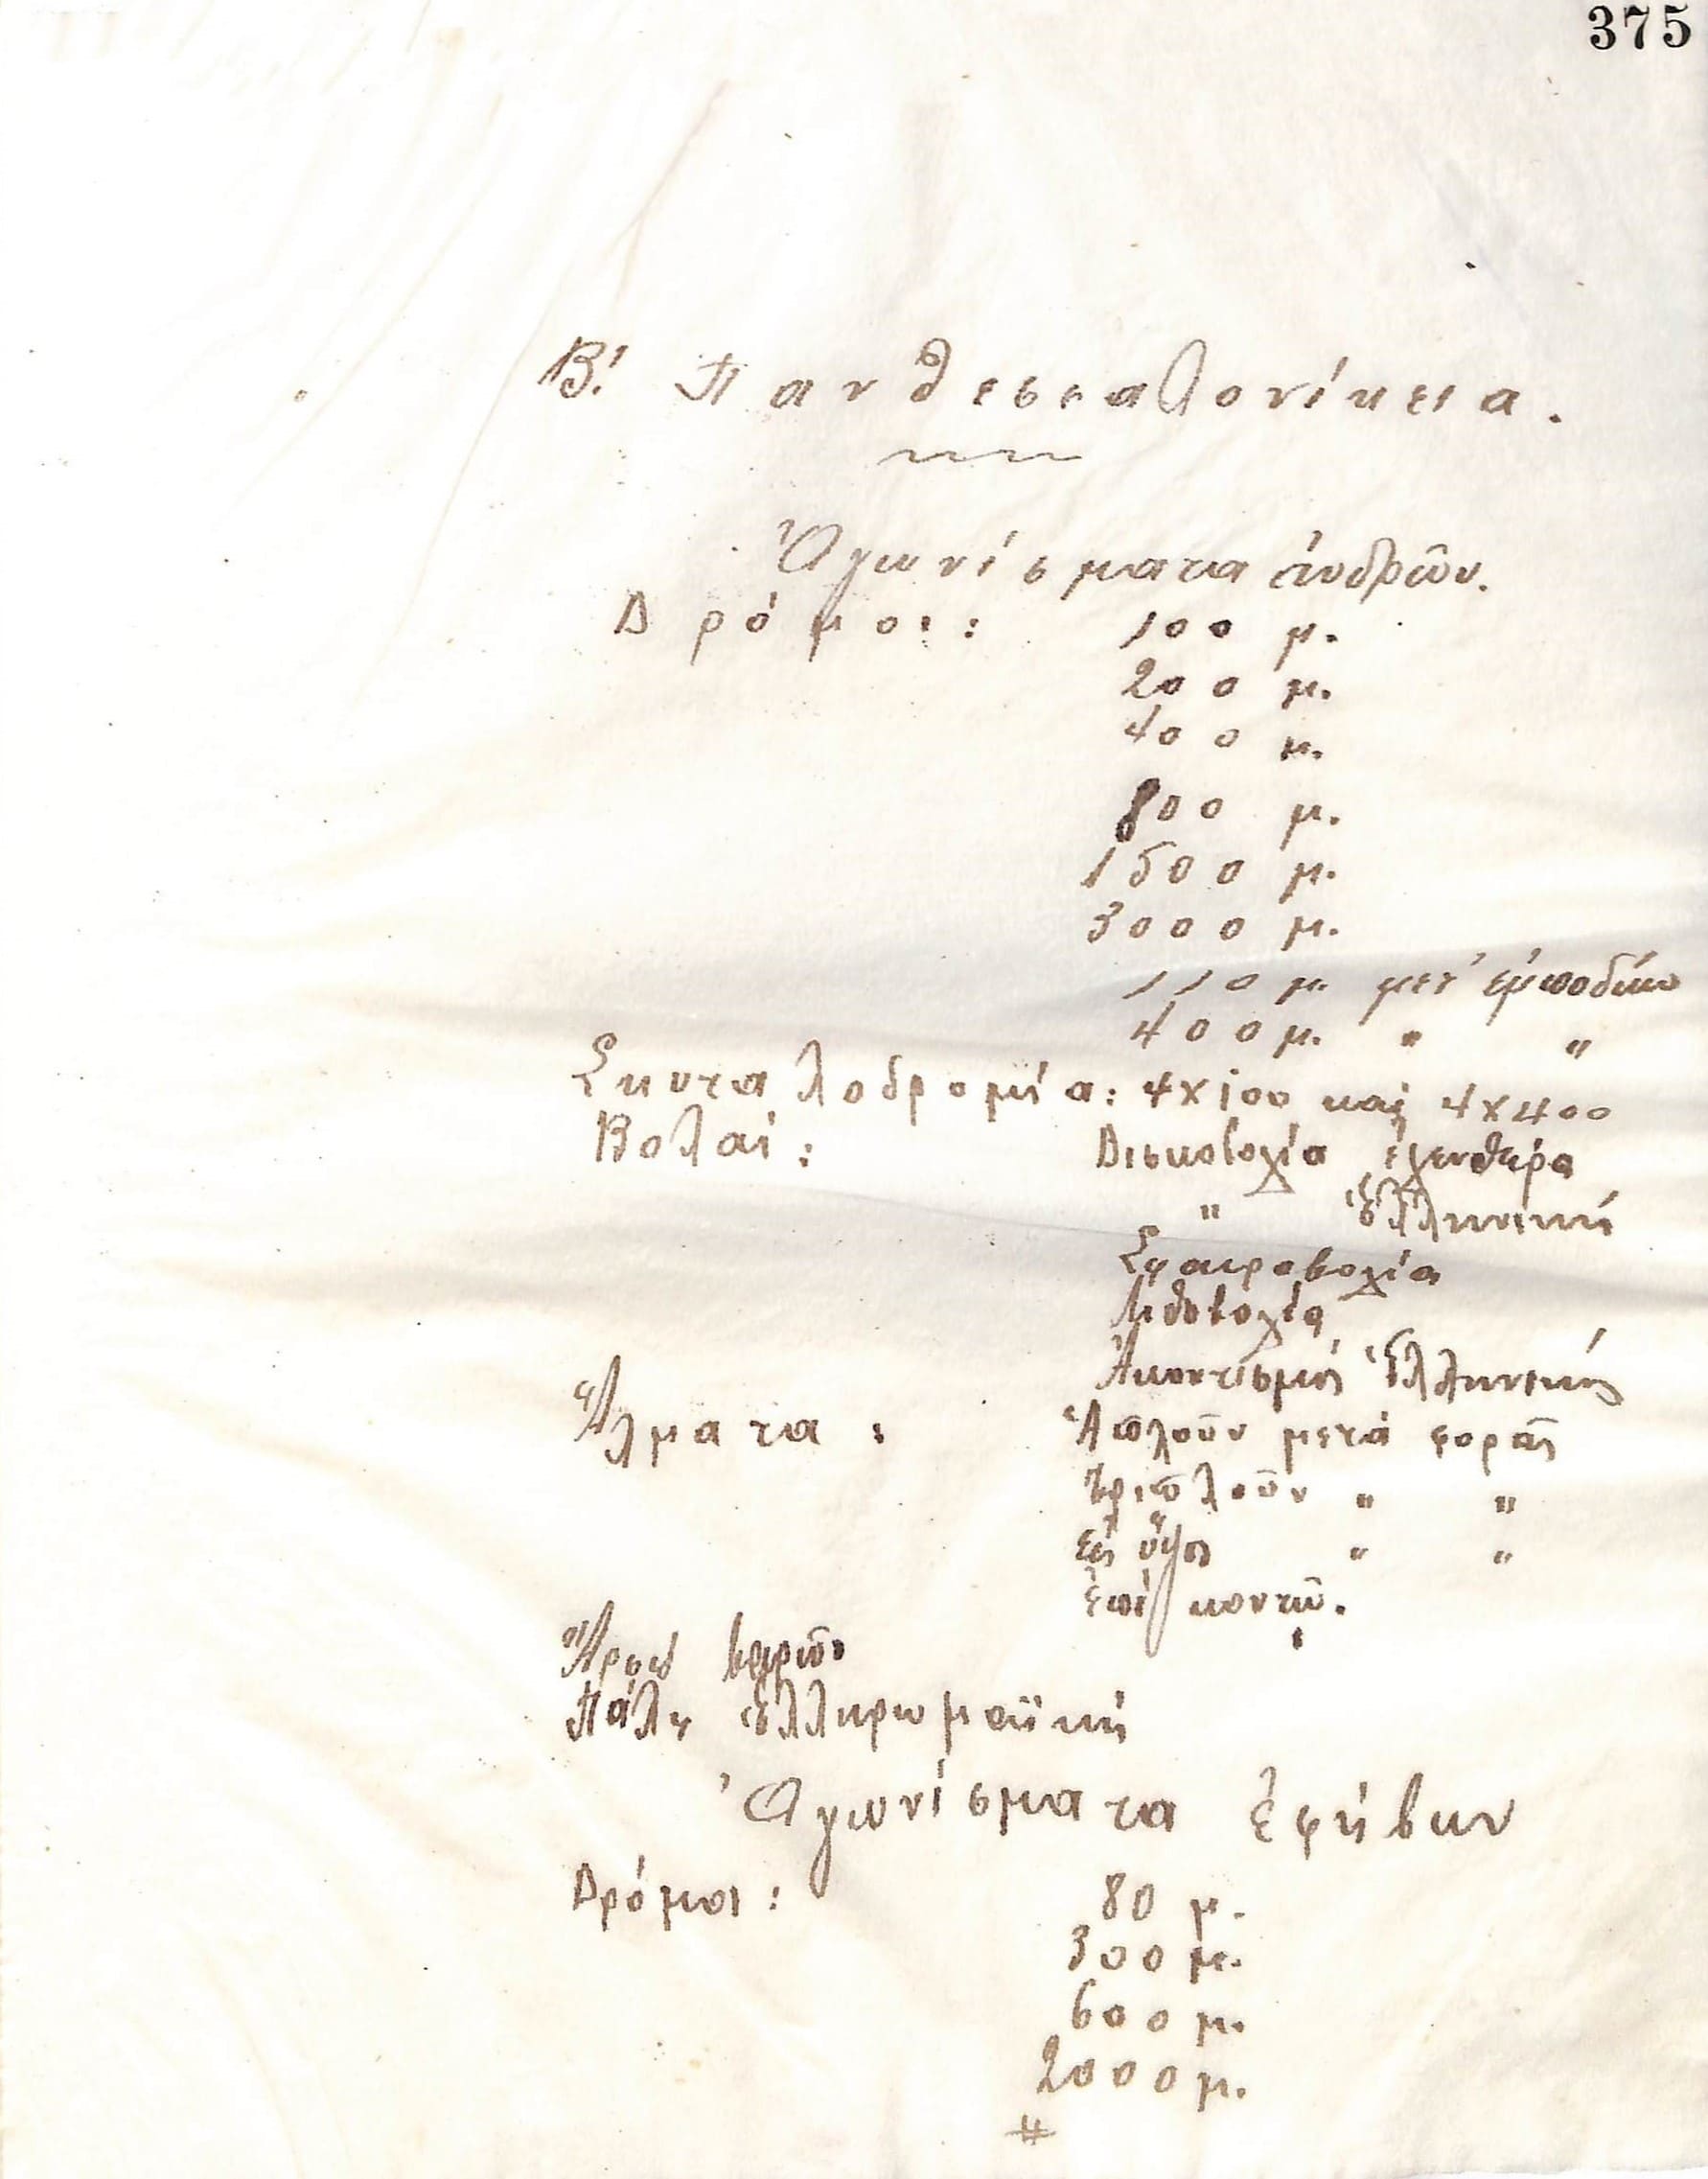 375
Β! Πανθεσσαλονίκεια.
Ἀγωνίσματα ἀνδρῶν.
Δρόμοι: 100 μ.
200 μ.
400 μ.
800 μ.
1500 μ.
3000 μ.
110 μ. μετ' ἐμποδίων
400 μ. " "
Σκυταλοδρομία: 4×100 καὶ 4×400
Βολαί: Δισκοβολία ἐλευθέρα
" Ἑλληνική
Σφαιροβολία
Λιθοβολία
Ἀκοντισμός Ἑλληνικός
Ἅλματα: Ἁπλοῦν μετά φορᾶς
Τριπλοῦν " "
εἰς ὕψος " "
ἐπί κοντῷ.
Ἄρσις βαρῶν
Πάλη Ἑλληρωμαϊκή
Ἀγωνίσματα ἐφήβων
Δρόμοι: 80 μ.
300 μ.
600 μ.
2000 μ.
#